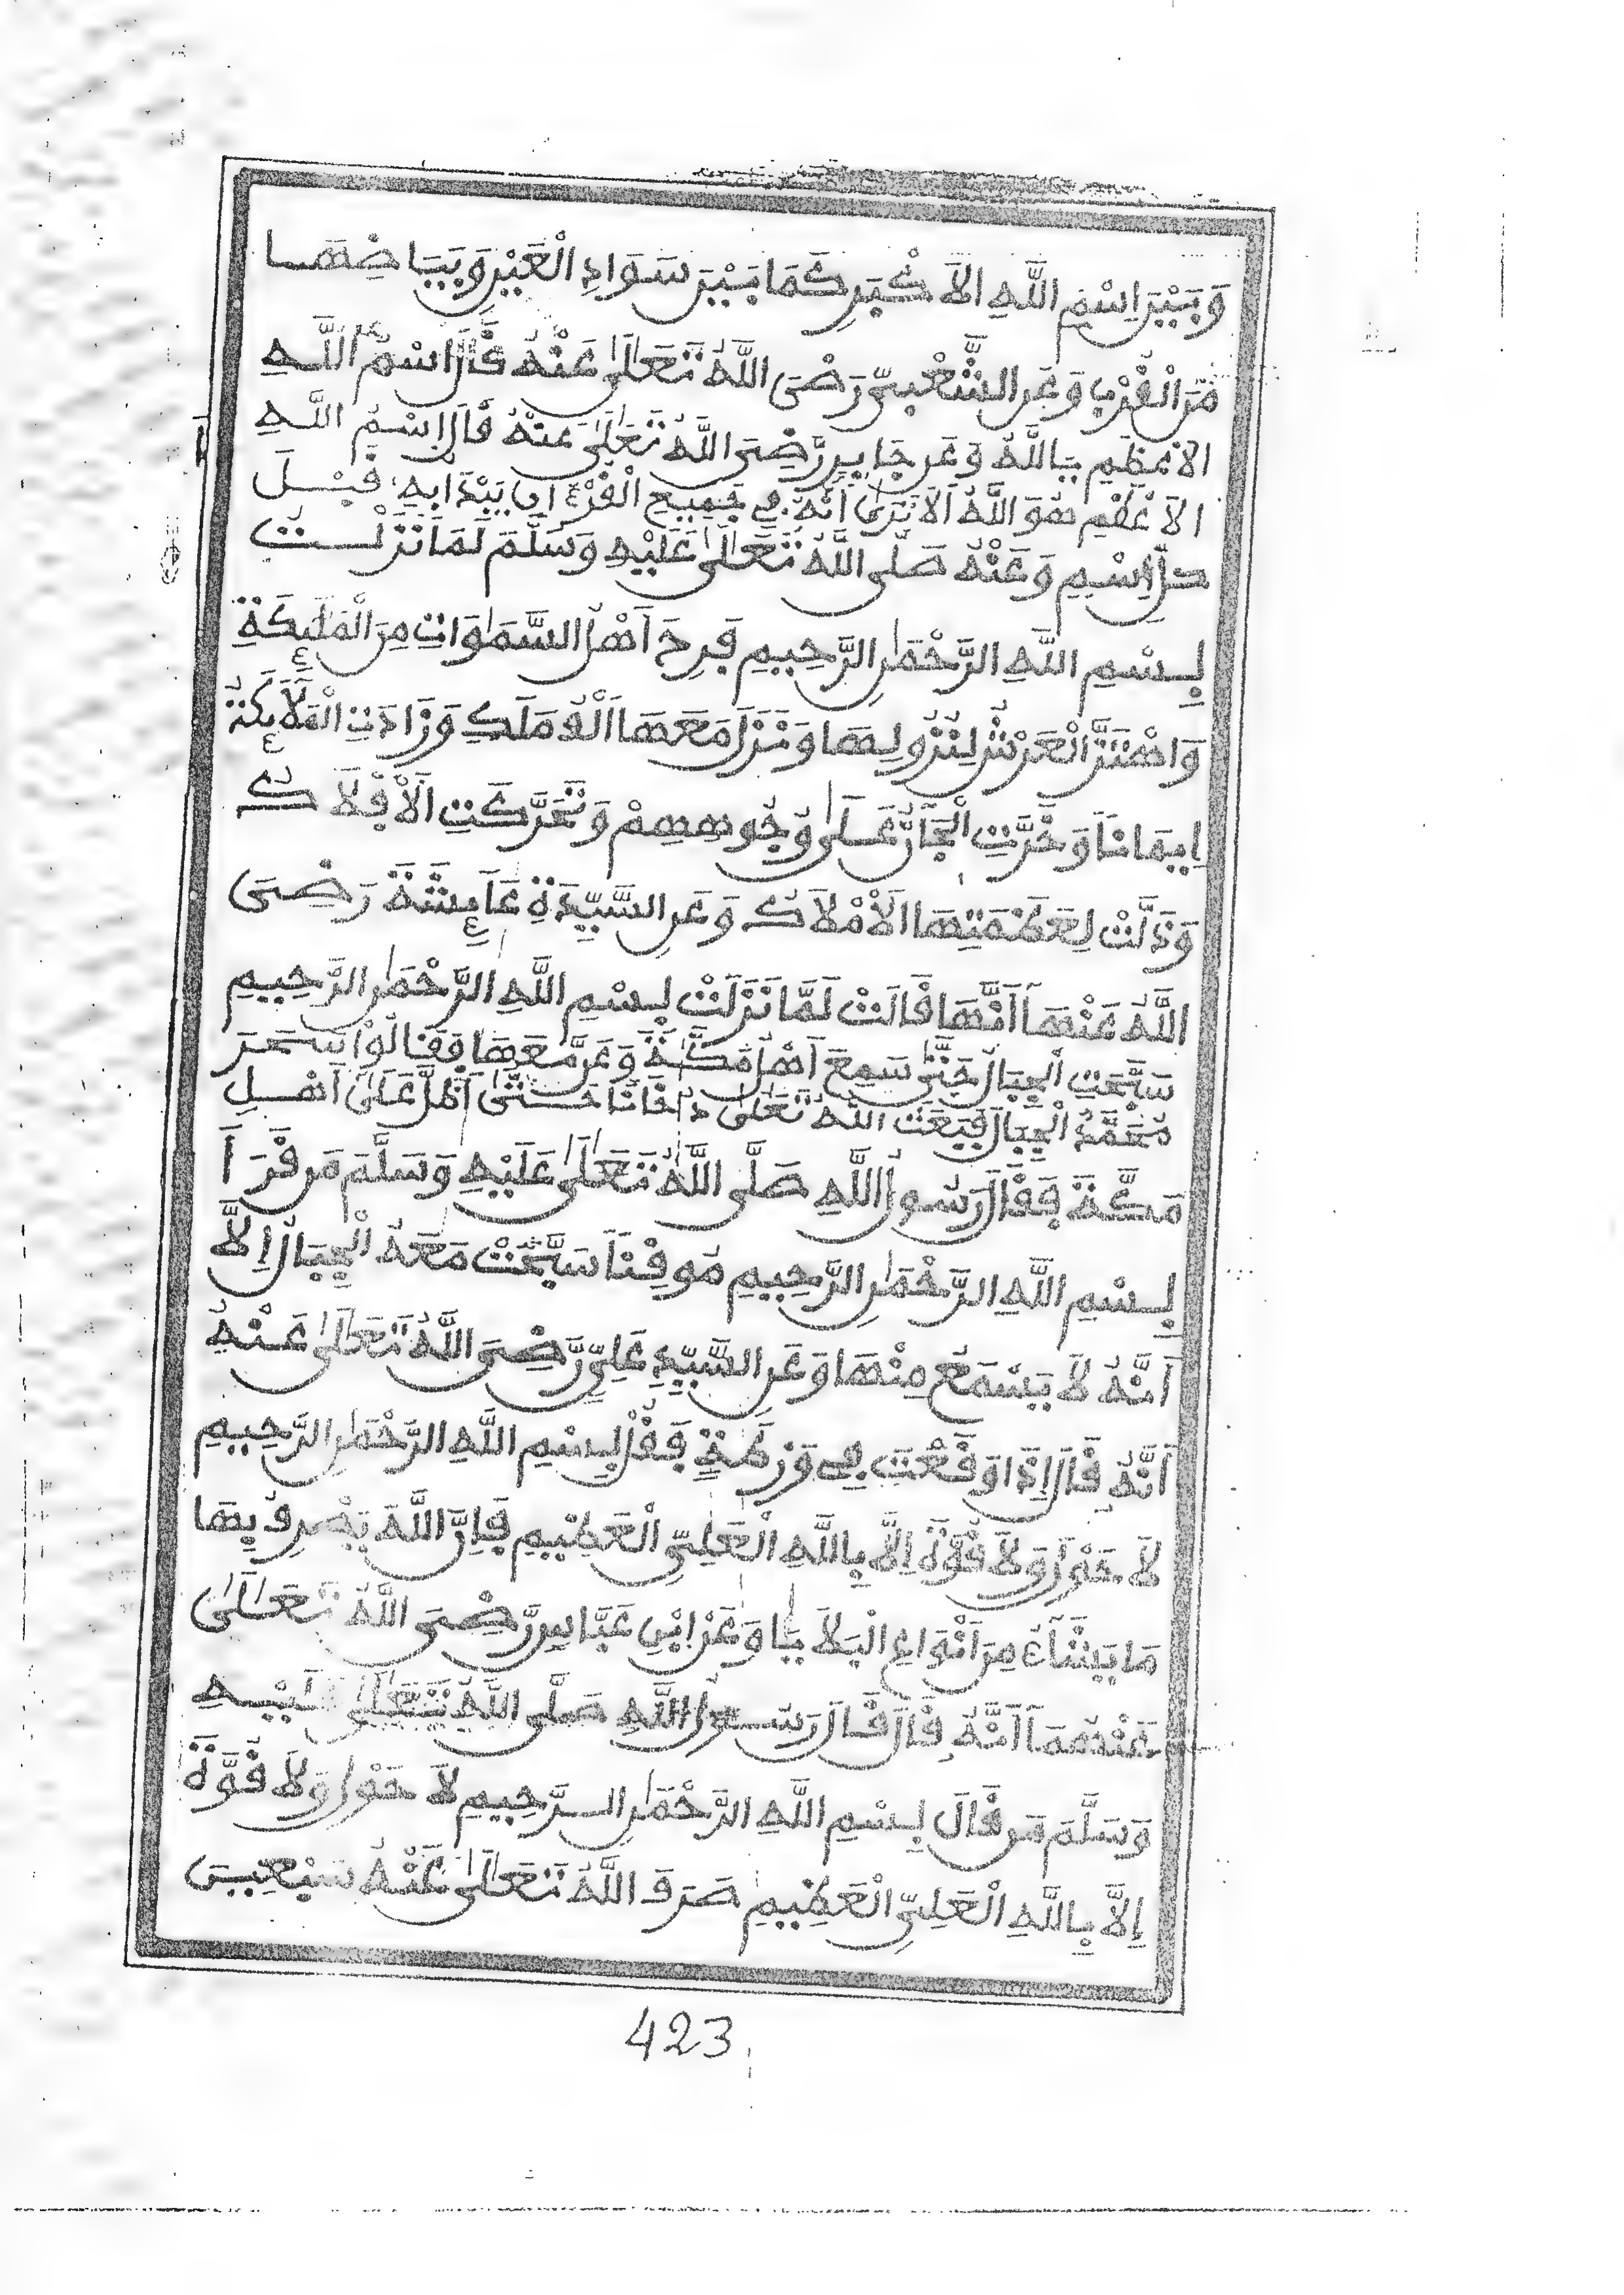 وَبَيْنَ اِسْمِ اللَّهِ الاَكْبَرِ كَمَا بَيْنَ سَوَادِ الْعَيْنِ وَبَيَاضِهَا
مِّنَ الْقُرْبِ وَعَنِ الشَّعْبِيِّ رَضِيَ اللَّهُ تَعَالَىٰ عَنْهُ قَالَ اسْمُ اللَّهِ
الاَعْظَمِ يَااللَّهُ وَعَن جَابِرٍ رَّضِيَ اللَّهُ تَعَالَىٰ عَنْهُ قَالَ اِسْمُ اللَّهِ
الاَعْظَمِ هُوَ اللَّهُ اَلاَ تَرَىٰ اَنَّهُ فِي جَمِيعِ الْقُرْءَانِ يَبْدَا بِهِ قَبْلَ
كُلِّ اِسْمٍ وَعَنْهُ صَلَّى اللَّهُ تَعَالَىٰ عَلَيْهِ وَسَلَّمَ لَمَا نَزَلَتْ
بِسْمِ اللَّهِ الرَّحْمَٰنِ الرَّحِيمِ فَرِحَ اَهْلُ السَّمَٰوَاتِ مِنَ الْمَلَٰٓئِكَةِ
وَاهْتَزَّ الْعَرْشُ لِنُزُولِهَا وَنَزَلَ مَعَهَا اَلْفُ مَلَكٍ وَزَادَتِ الْمَلَآئِكَةُ
اِيمَانًا وَخَرَّتِ الْجَآنُّ عَلَىٰ وُجُوهِهِمْ وَتَحَرَّكَتِ الَاَفْلَاكُ
وَذَلَّتْ لِعَظَمَتِهَا الَاَمْلَاكُ وَعَنِ السَّيِّدَةِ عَآئِشَةَ رَضِيَ
اللَّهُ عَنْهَآ اَنَّهَا قَالَتْ لَمَّا نَزَلَتْ بِسْمِ اللَّهِ الرَّحْمَٰنِ الرَّحِيمِ
سَبَّحَتِ الْجِبَالُ حَتَّىٰ سَمِعَ اَهْلُ مَكَّةَ وَمَن مَّعَهَا فَقَالُوا سَحَرَ
مُحَمَّدٌ الْجِبَالَ فَبَعَثَ اللَّهُ تَعَالَىٰ دُخَانًا حَتَّىٰ اَظَلَّ عَلَىٰ اَهْلِ
مَكَّةَ فَقَالَ رَسُولُ اللَّهِ صَلَّى اللَّهُ تَعَالَىٰ عَلَيْهِ وَسَلَّمَ مَن قَرَأَ
بِسْمِ اللَّهِ الرَّحْمَٰنِ الرَّحِيمِ مُوقِنًا سَبَّحَتْ مَعَهُ الْجِبَالُ اِلَّا
اَنَّهُ لَا يَسْمَعُ مِنْهَا وَعَنِ السَّيِّدِ عَلِيٍّ رَّضِيَ اللَّهُ تَعَالَىٰ عَنْهُ
اَنَّهُ قَالَ اِذَا وَقَعْتَ فِي وَرْطَةٍ فَقُلْ بِسْمِ اللَّهِ الرَّحْمَٰنِ الرَّحِيمِ
لَا حَوْلَ وَلَا قُوَّةَ اِلَّا بِاللَّهِ الْعَلِيِّ الْعَظِيمِ فَاِنَّ اللَّهَ يَصْرِفُ بِهَا
مَا يَشَآءُ مِنَ اَنْوَاعِ الْبَلَايَا وَعَنْ اِبْنِ عَبَّاسٍ رَّضِيَ اللَّهُ تَعَالَىٰ
عَنْهُمَآ اَنَّهُ قَالَ قَالَ رَسُولُ اللَّهِ صَلَّى اللَّهُ تَعَالَىٰ عَلَيْهِ
وَسَلَّمَ مَن قَالَ بِسْمِ اللَّهِ الرَّحْمَٰنِ الرَّحِيمِ لَا حَوْلَ وَلَا قُوَّةَ
اِلَّا بِاللَّهِ الْعَلِيِّ الْعَظِيمِ صَرَفَ اللَّهُ تَعَالَىٰ عَنْهُ سَبْعِينَ
423